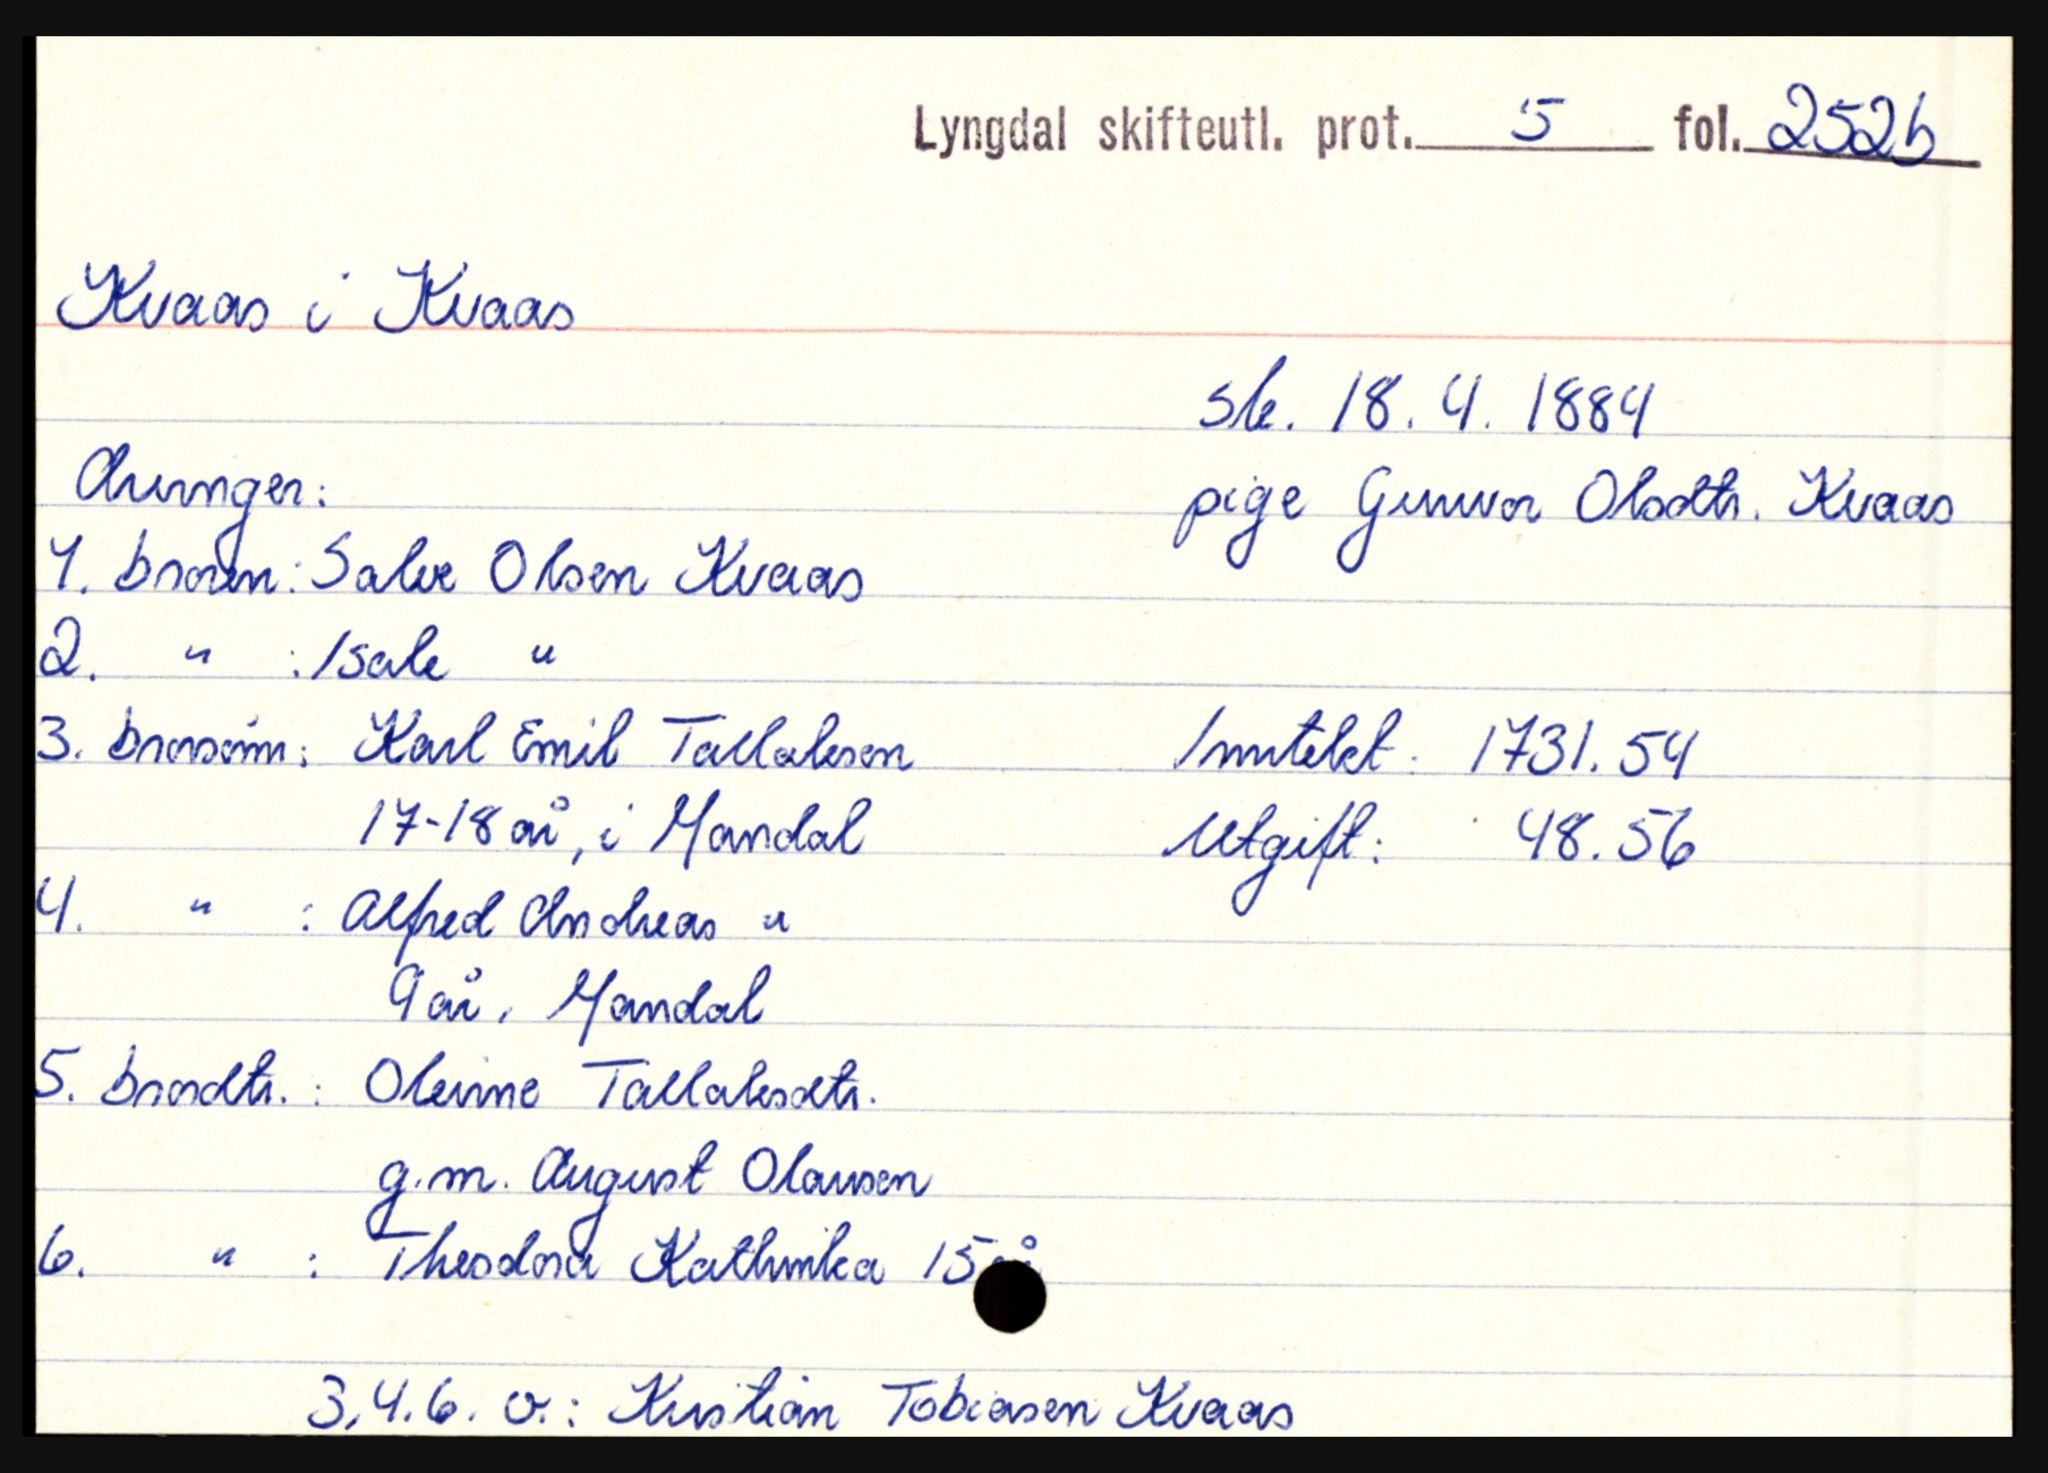 Lyngdal skifteutl. prot. 5 fol. 252b
Kvaas i Kvaas
sk. 18.4.1884
Arvinger:
pige Gunvor Olsdtr. Kvaas
1. broren: Salve Olsen Kvaas
2. " : Isak "
3. brorsønn: Karl Emil Tallaksen
Inntekt: 1731.54
17-18 år, i Mandal
Utgift: 48.56
4. " : Alfred Andreas "
9 år, Mandal
5. brordtr. : Olevine Tallaksdtr.
g.m. August Olausen
6. " : Theodora Kathinka 15 år
3,4.6. v.: Kristian Tobiasen Kvaas